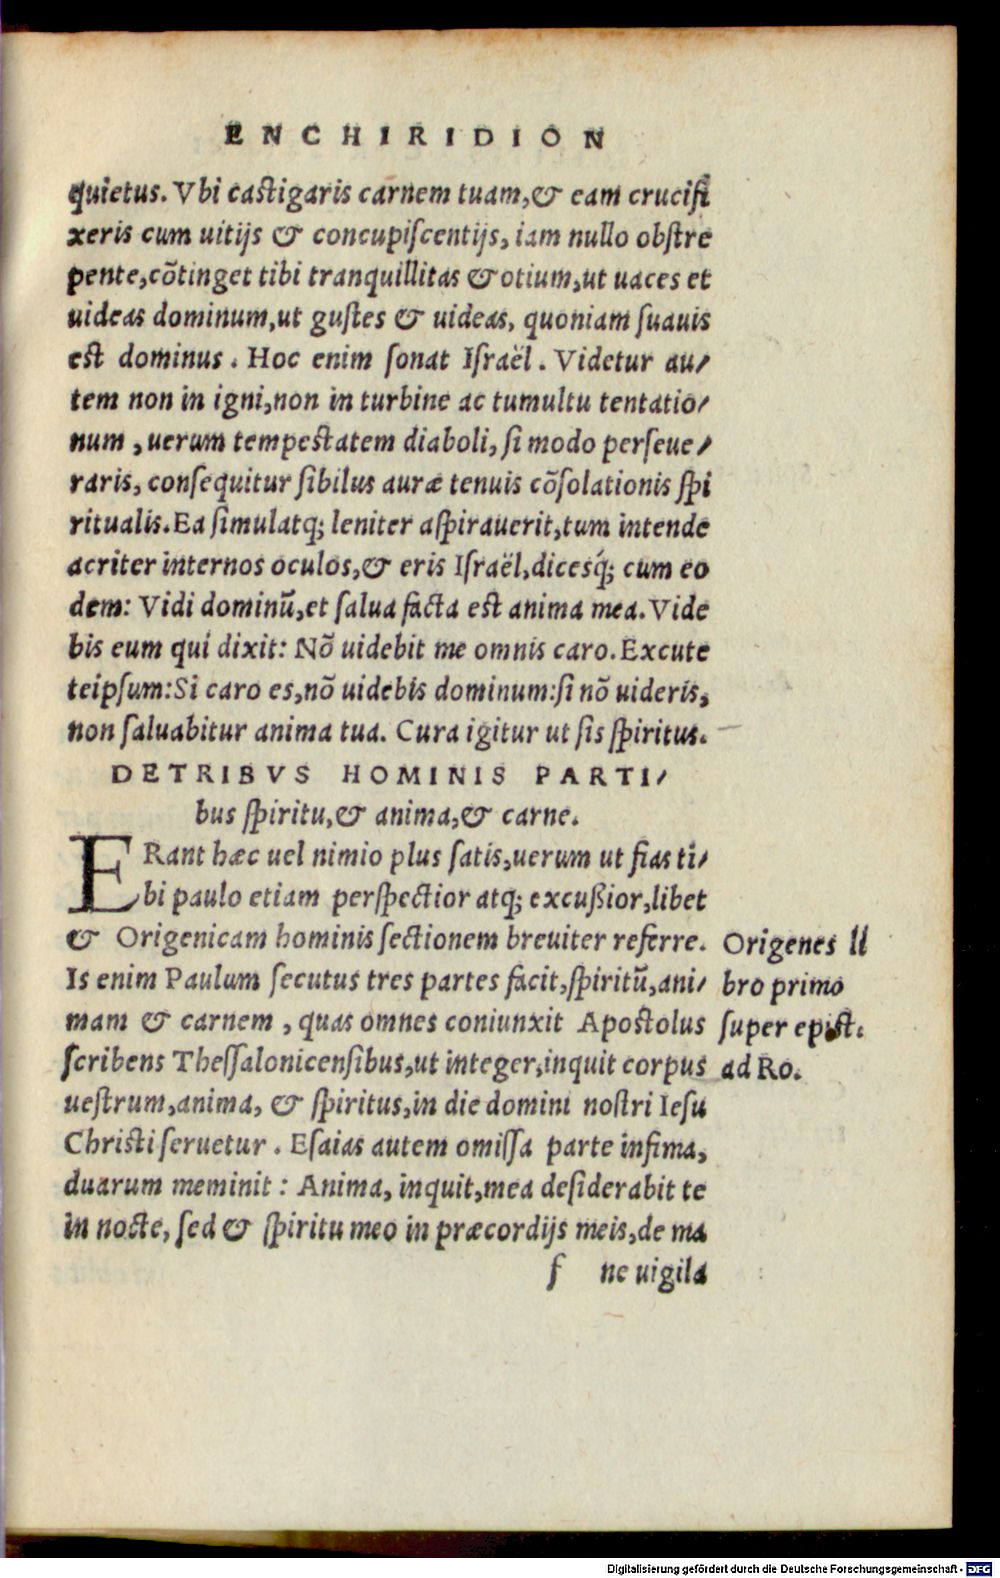 ENCHIRIDION
quietus. Vbi castigaris carnem tuam,& eam crucifi
xeris cum uitijs & concupiſcentijs, iam nullo obſtre
pente,cõtinget tibi tranquillitas & otium,ut uaces et
uideas dominum,ut guſtes & uideas, quoniam ſuauis
est dominus. Hoc enim ſonat Iſraël. Videtur au/
tem non in igni,non in turbine ac tumultu tentatio/
num, uerum tempestatem diaboli, ſi modo perſeue/
raris, conſequitur ſibilus auræ tenuis cõſolationis ſpi
ritualis. Ea ſimulatq; leniter aſpirauerit,tum intende
acriter internos oculos,& eris Iſraël,dicesq́; cum eo
dem: Vidi dominũ,et ſalua facta est anima mea. Vide
bis eum qui dixit: Nõ uidebit me omnis caro. Excute
teipſum: Si caro es,nõ uidebis dominum:ſi nõ uideris,
non ſaluabitur anima tua. Cura igitur ut ſis ſpiritus.
DE TRIBVS HOMINIS PARTI/
bus ſpiritu,& anima,& carne.
ERant hæc uel nimio plus ſatis,uerum ut fias ti/
bi paulo etiam perſpectior atq; excußior,libet
& Origenicam hominis ſectionem breuiter referre.
Is enim Paulum ſecutus tres partes facit,ſpiritũ,ani/
mam & carnem, quas omnes coniunxit Apostolus
ſcribens Theſſalonicenſibus,ut integer,inquit corpus
uestrum,anima, & ſpiritus,in die domini nostri Iesu
Christi ſeruetur. Eſaias autem omiſſa parte infima,
duarum meminit: Anima, inquit,mea deſiderabit te
in nocte, ſed & ſpiritu meo in præcordijs meis,de ma
f ne uigila
Origenes li
bro primo
ſuper epist.
ad Ro.
Digitalisierung gefördert durch die Deutsche Forschungsgemeinschaft - DFG